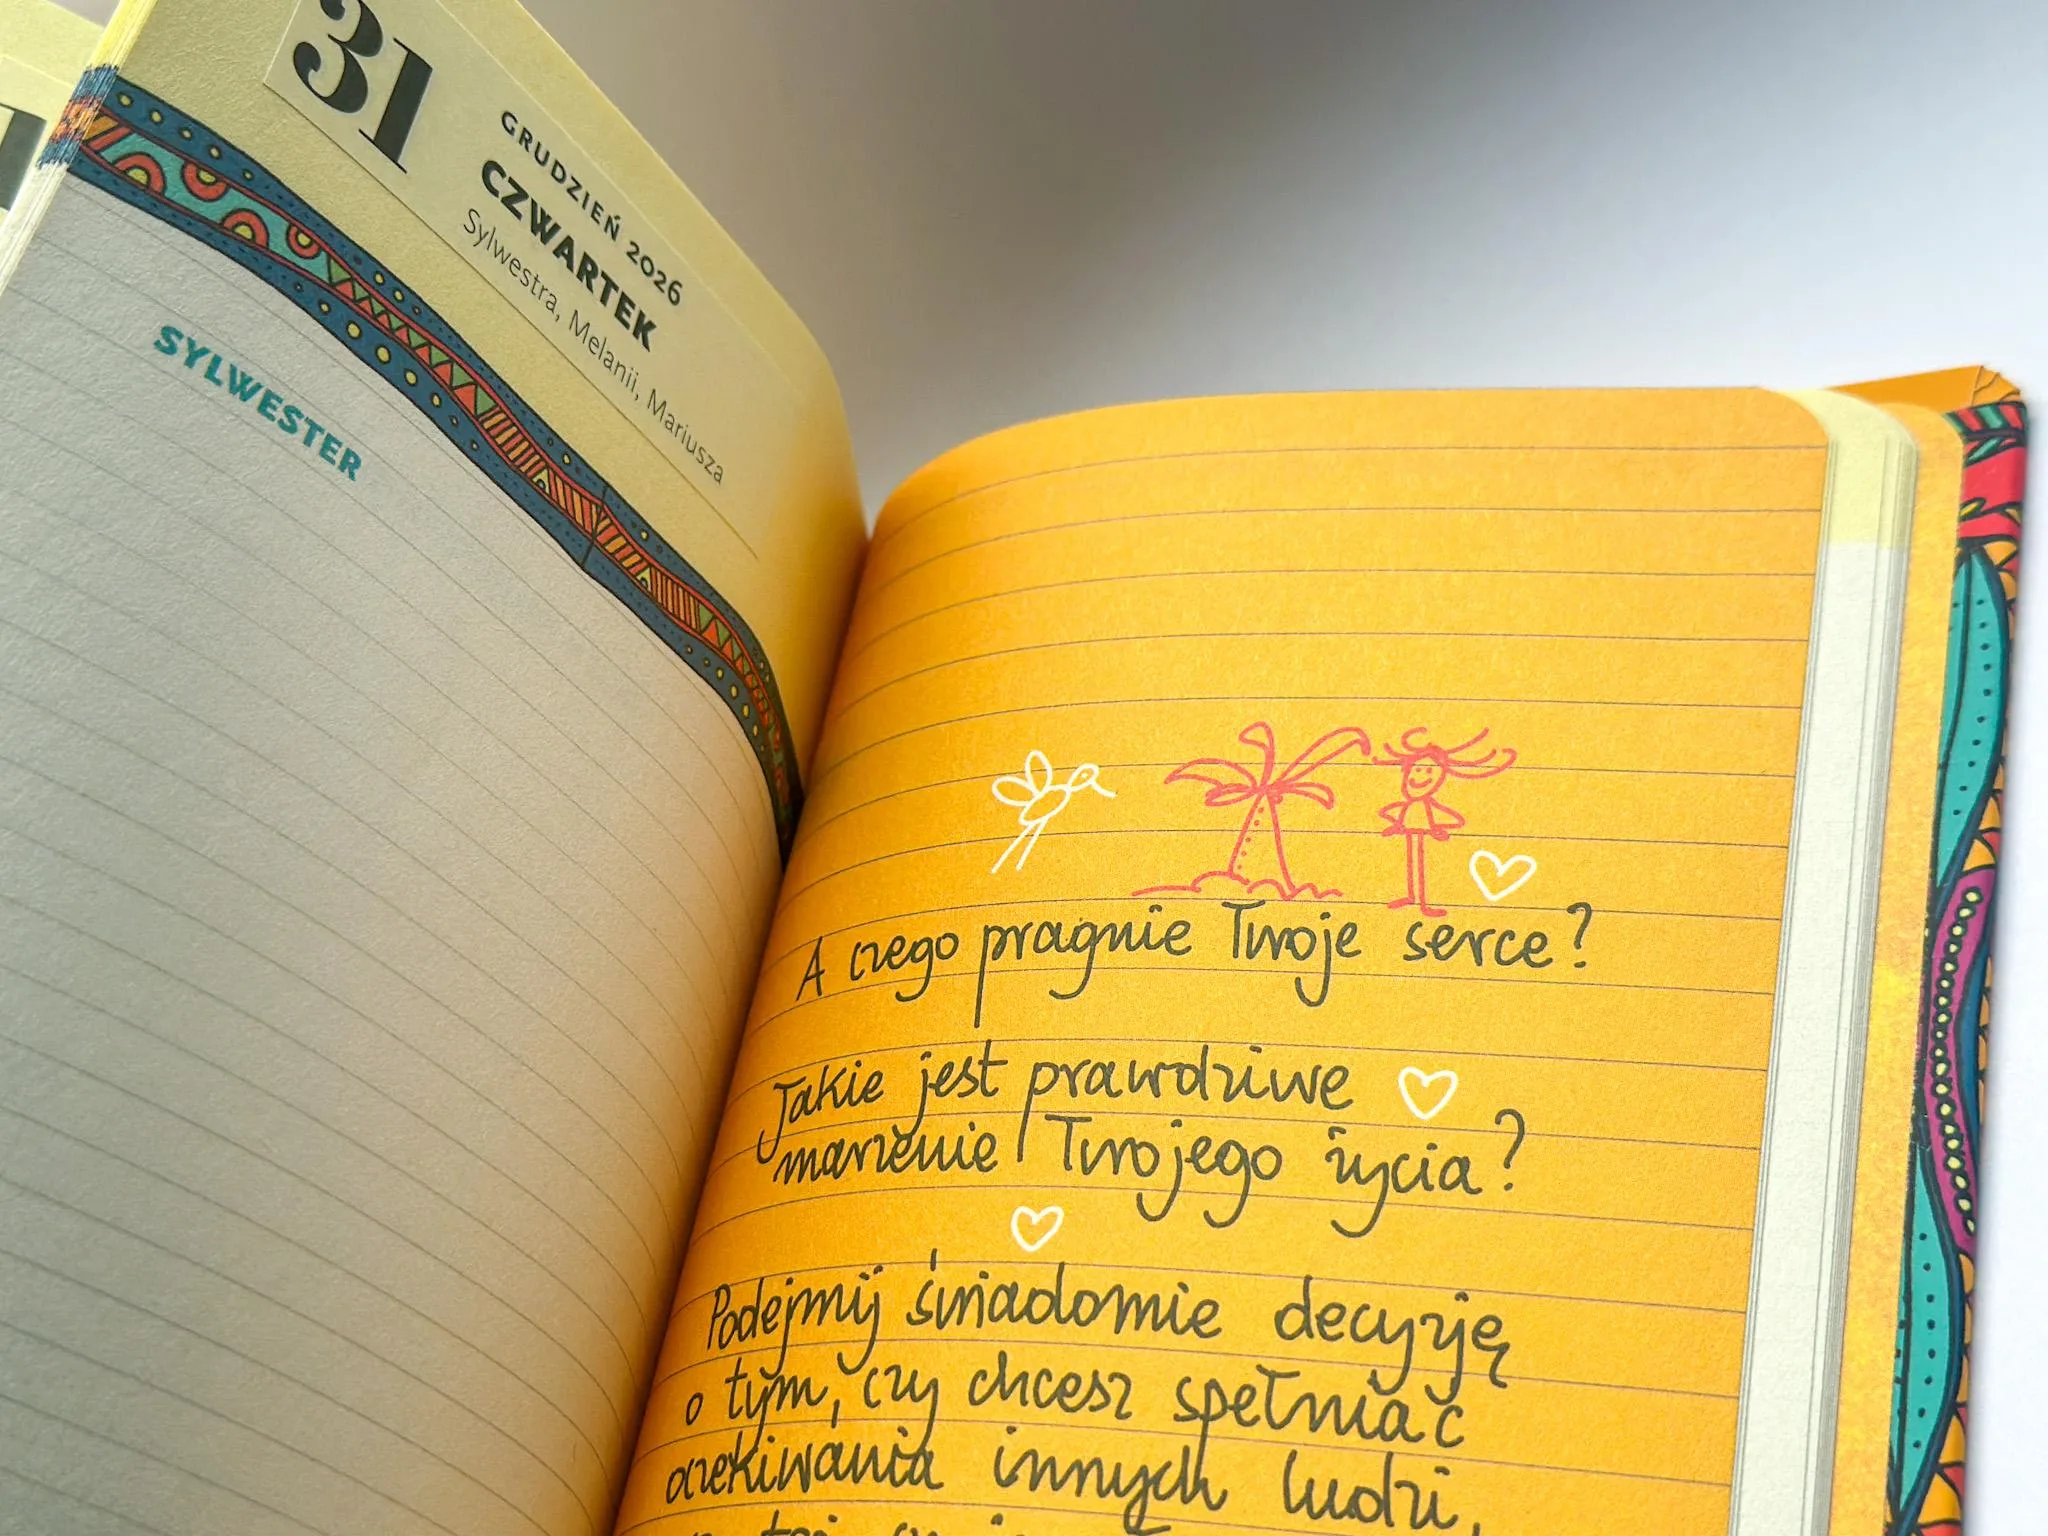 31
GRUDZIEŃ 2026
CZWARTEK
Sylwestra, Melanii, Mariusza
SYLWESTER
A czego pragnie Twoje serce?
Jakie jest prawdziwe
marzenie Twojego życia?
Podejmij świadomie decyzję
o tym, czy chcesz spełniać
oczekiwania innych ludzi,